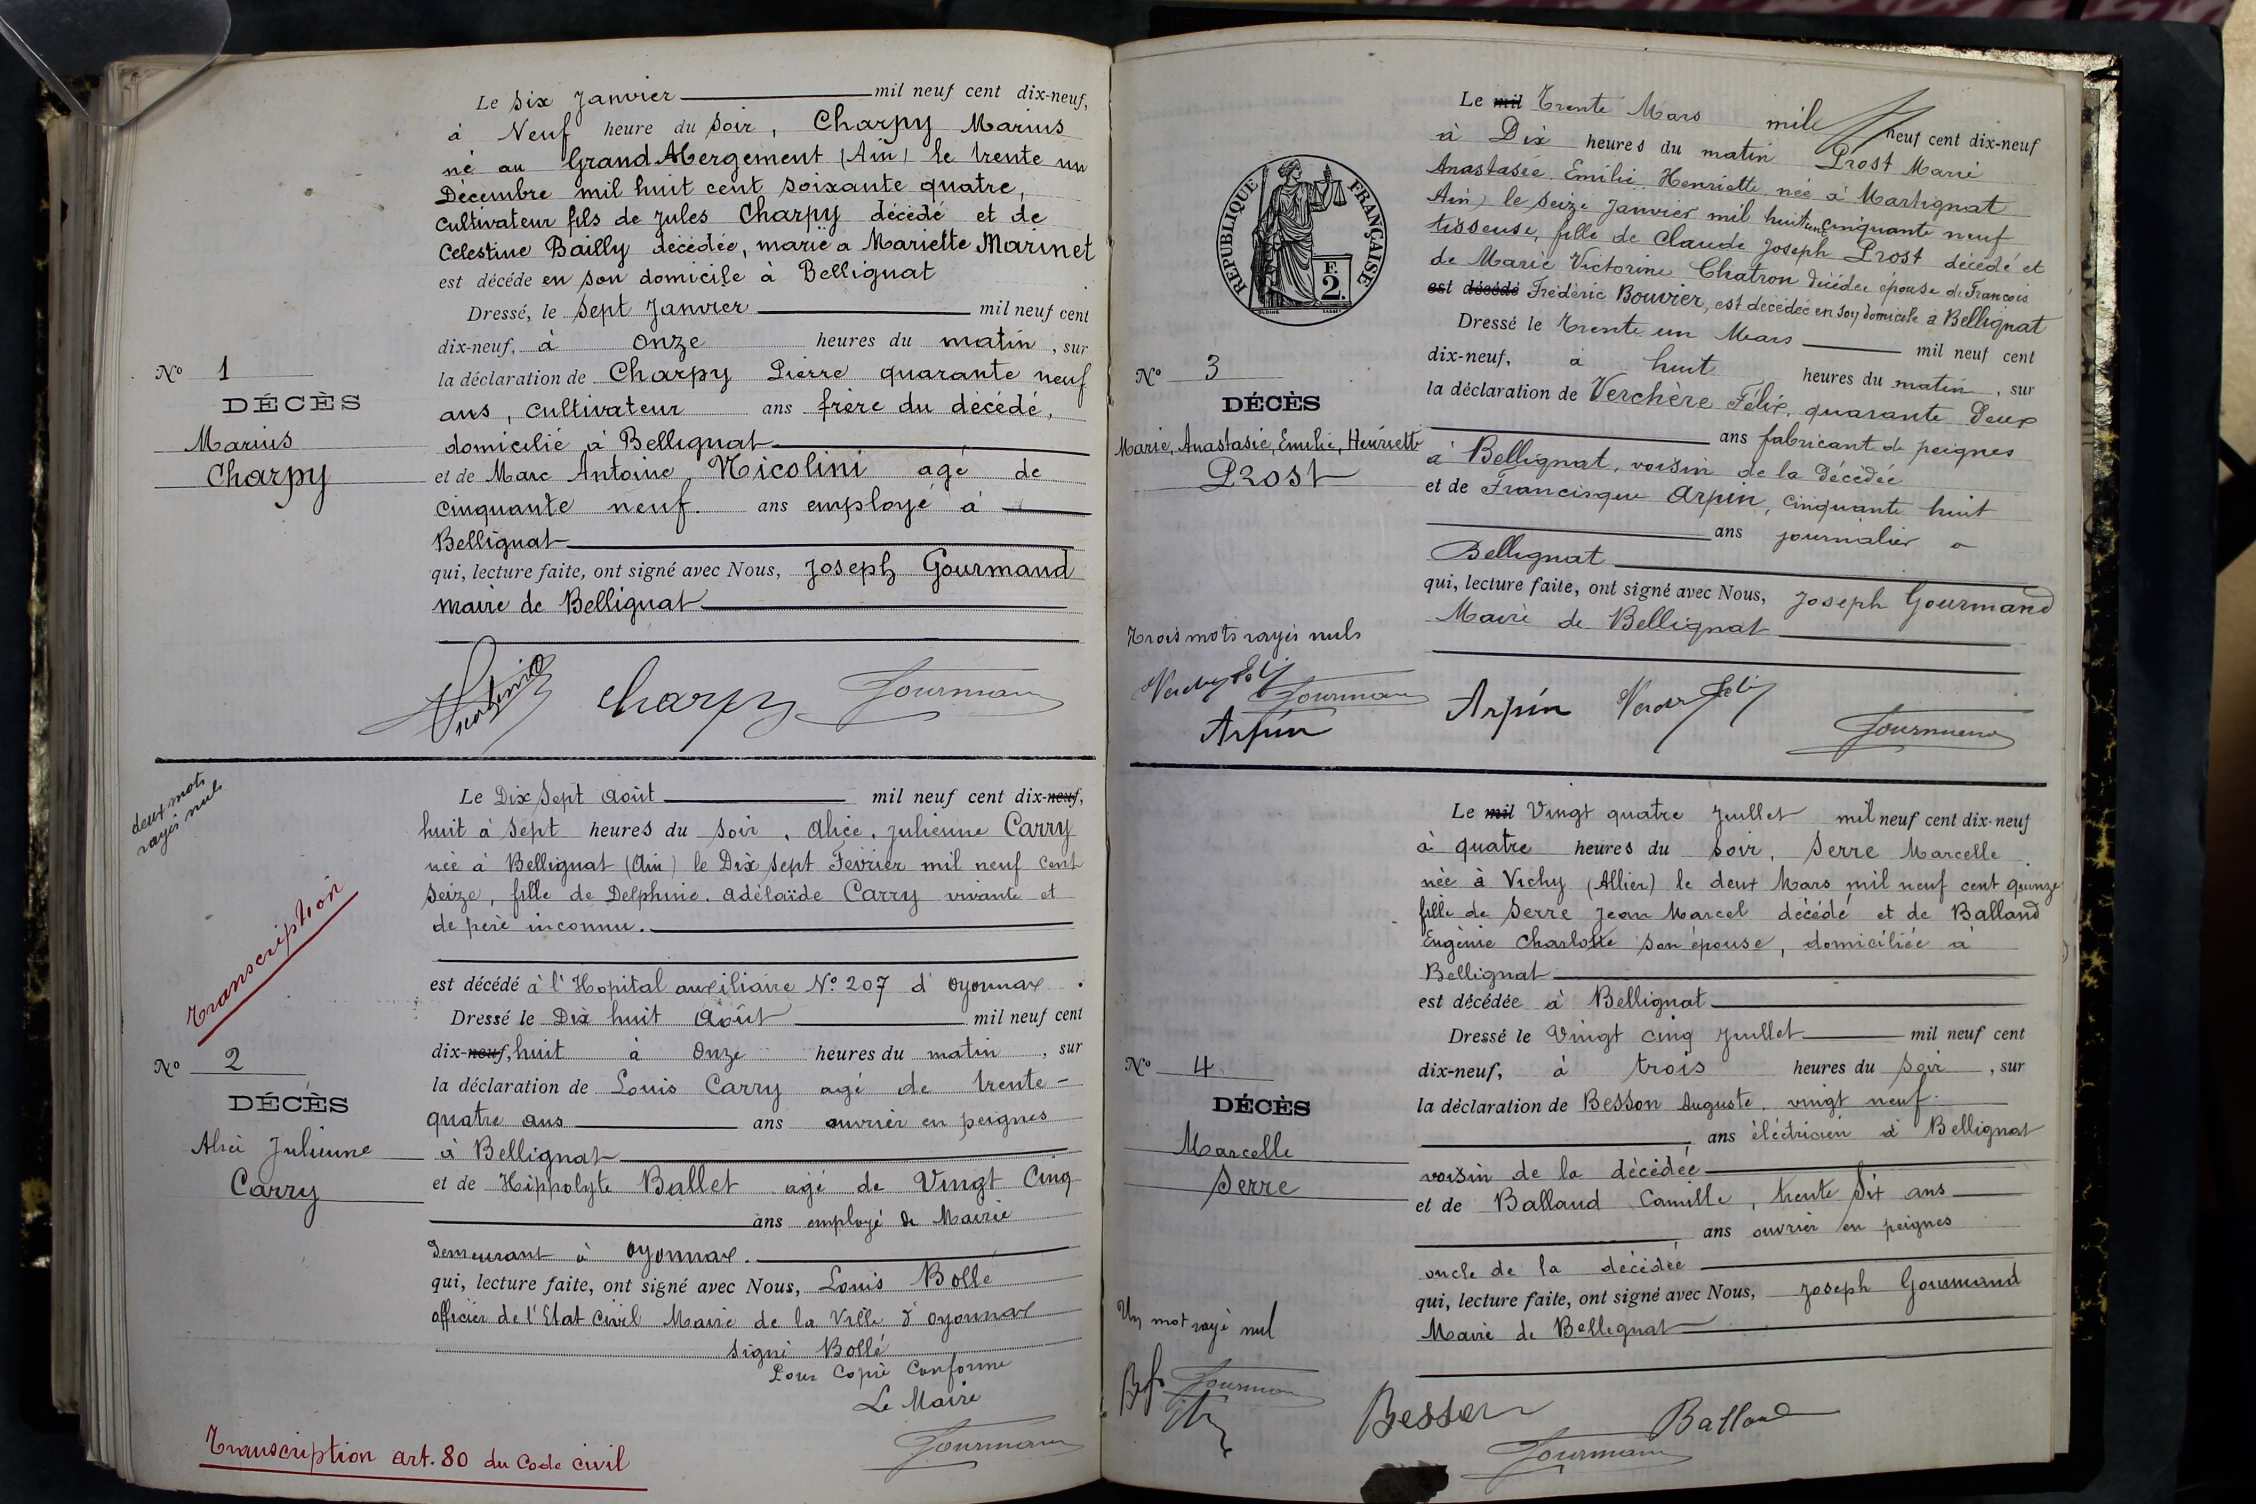 Le Six Janvier mil neuf cent dix-neuf,
à Neuf heure du Soir, Charpy Marius
né au Grand Abergement (Ain) le trente un
Décembre mil huit cent soixante quatre,
cultivateur fils de Jules Charpy décédé et de
Célestine Bailly décédée, marié a Mariette Marinet
est décédé en son domicile à Bellignat
Dressé, le Sept Janvier mil neuf cent
dix-neuf, à onze heures du matin, sur
la déclaration de Charpy Pierre quarante neuf
ans, cultivateur ans frère du décédé,
domicilié à Bellignat
et de Marc Antoine Nicolini agé de
cinquante neuf. ans employé à
Bellignat
qui, lecture faite, ont signé avec Nous, Joseph Gourmand
maire de Bellignat
Nº 1
DÉCÈS
Marius
Charpy
Nicolini Charpy Gourmand
deux mots
rayés nuls
Transcription
Nº 2
DÉCÈS
Alice Julienne
Carry
Le Dix Sept Août mil neuf cent dix-neuf,
huit à Sept heures du soir, Alice, Julienne Carry
née à Bellignat (Ain) le Dix Sept Février mil neuf cent
Seize, fille de Delphine. Adélaïde Carry vivante et
de père inconnu.
est décédé à l'Hopital auxiliaire Nº 207 d'Oyonnax.
Dressé le Dix huit Août mil neuf cent
dix-neuf, huit à Onze heures du matin, sur
la déclaration de Louis Carry agé de trente-
quatre ans ans ouvrier en peignes
à Bellignat
et de Hippolyte Ballet agé de Vingt Cinq
ans employé de Mairie
Demeurant à Oyonnax.
qui, lecture faite, ont signé avec Nous, Louis Bollé
officier de l'Etat civil Maire de la Ville d'Oyonnax
Signé Bollé
Pour Copie Conforme
Le Maire
Gourmand
Transcription art. 80 du Code civil
RÉPUBLIQUE FRANÇAISE
F.
2.
Le mil Trente Mars mil neuf cent dix-neuf
à Dix heures du matin Prost Marie
Anastasie Emilie Henriette née à Martignat
Ain) le seize Janvier mil huit cent cinquante neuf
tisseuse, fille de Claude Joseph Prost décédé et
de Marie Victorine Chatron décédée épouse de François
est décédé Frédéric Bouvier, est décédée en son domicile à Bellignat
Dressé le Trente un Mars mil neuf cent
dix-neuf, à huit heures du matin, sur
la déclaration de Verchère Félix, quarante Deux
ans fabricant de peignes
à Bellignat, voisin de la décédée
et de Francisque Arpin, cinquante huit
ans journalier a
Bellignat
qui, lecture faite, ont signé avec Nous, Joseph Gourmand
Maire de Bellignat
Nº 3
DÉCÈS
Marie, Anastasie, Emilie, Henriette
Prost
Trois mots rayés nuls
Verchère Félix Gourmand
Arpin
Arpin Verchère Félix
Gourmand
Le mil Vingt quatre Juillet mil neuf cent dix-neuf
à quatre heures du soir, Serre Marcelle
née à Vichy (Allier) le deux Mars mil neuf cent quinze
fille de Serre Jean Marcel décédé et de Balland
Eugénie Charlotte son épouse, domiciliée à
Bellignat
est décédée à Bellignat
Dressé le Vingt cinq Juillet mil neuf cent
dix-neuf, à trois heures du soir, sur
la déclaration de Besson Auguste, vingt neuf
ans éléctricien à Bellignat
voisin de la décédée
et de Balland Camille, trente six ans
ans ouvrier en peignes
oncle de la décédée
qui, lecture faite, ont signé avec Nous, Joseph Gourmand
Maire de Bellignat
Nº 4
DÉCÈS
Marcelle
Serre
Un mot rayé nul
Gourmand
Besson Balland
Gourmand